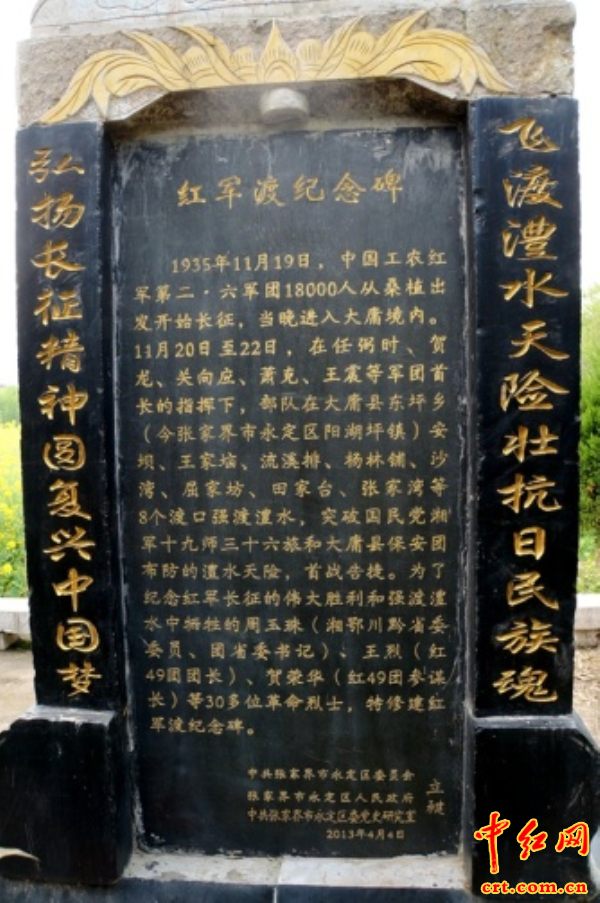 飞渡澧水天险壮抗日民族魂
弘扬长征精神圆复兴中国梦
红军渡纪念碑
1935年11月19日，中国工农红
军第二·六军团18000人从桑植出
发开始长征，当晚进入大庸境内。
11月20日至22日，在任弼时、贺
龙、关向应、萧克、王震等军团首
长的指挥下，部队在大庸县东坪乡
（今张家界市永定区阳湖坪镇）安
坝、王家垴、流溪排、杨林铺、沙
湾、屈家坊、田家台、张家湾等
8个渡口强渡澧水，突破国民党湘
军十九师三十六旅和大庸县保安团
布防的澧水天险，首战告捷。为了
纪念红军长征的伟大胜利和强渡澧
水中牺牲的周玉珠（湘鄂川黔省委
委员、团省委书记）、王烈（红
49团团长）、贺荣华（红49团参谋
长）等30多位革命烈士，特修建红
军渡纪念碑。
中共张家界市永定区委员会
张家界市永定区人民政府
中共张家界市永定区委党史研究室
立
2013年4月4日
中红网
crt.com.cn